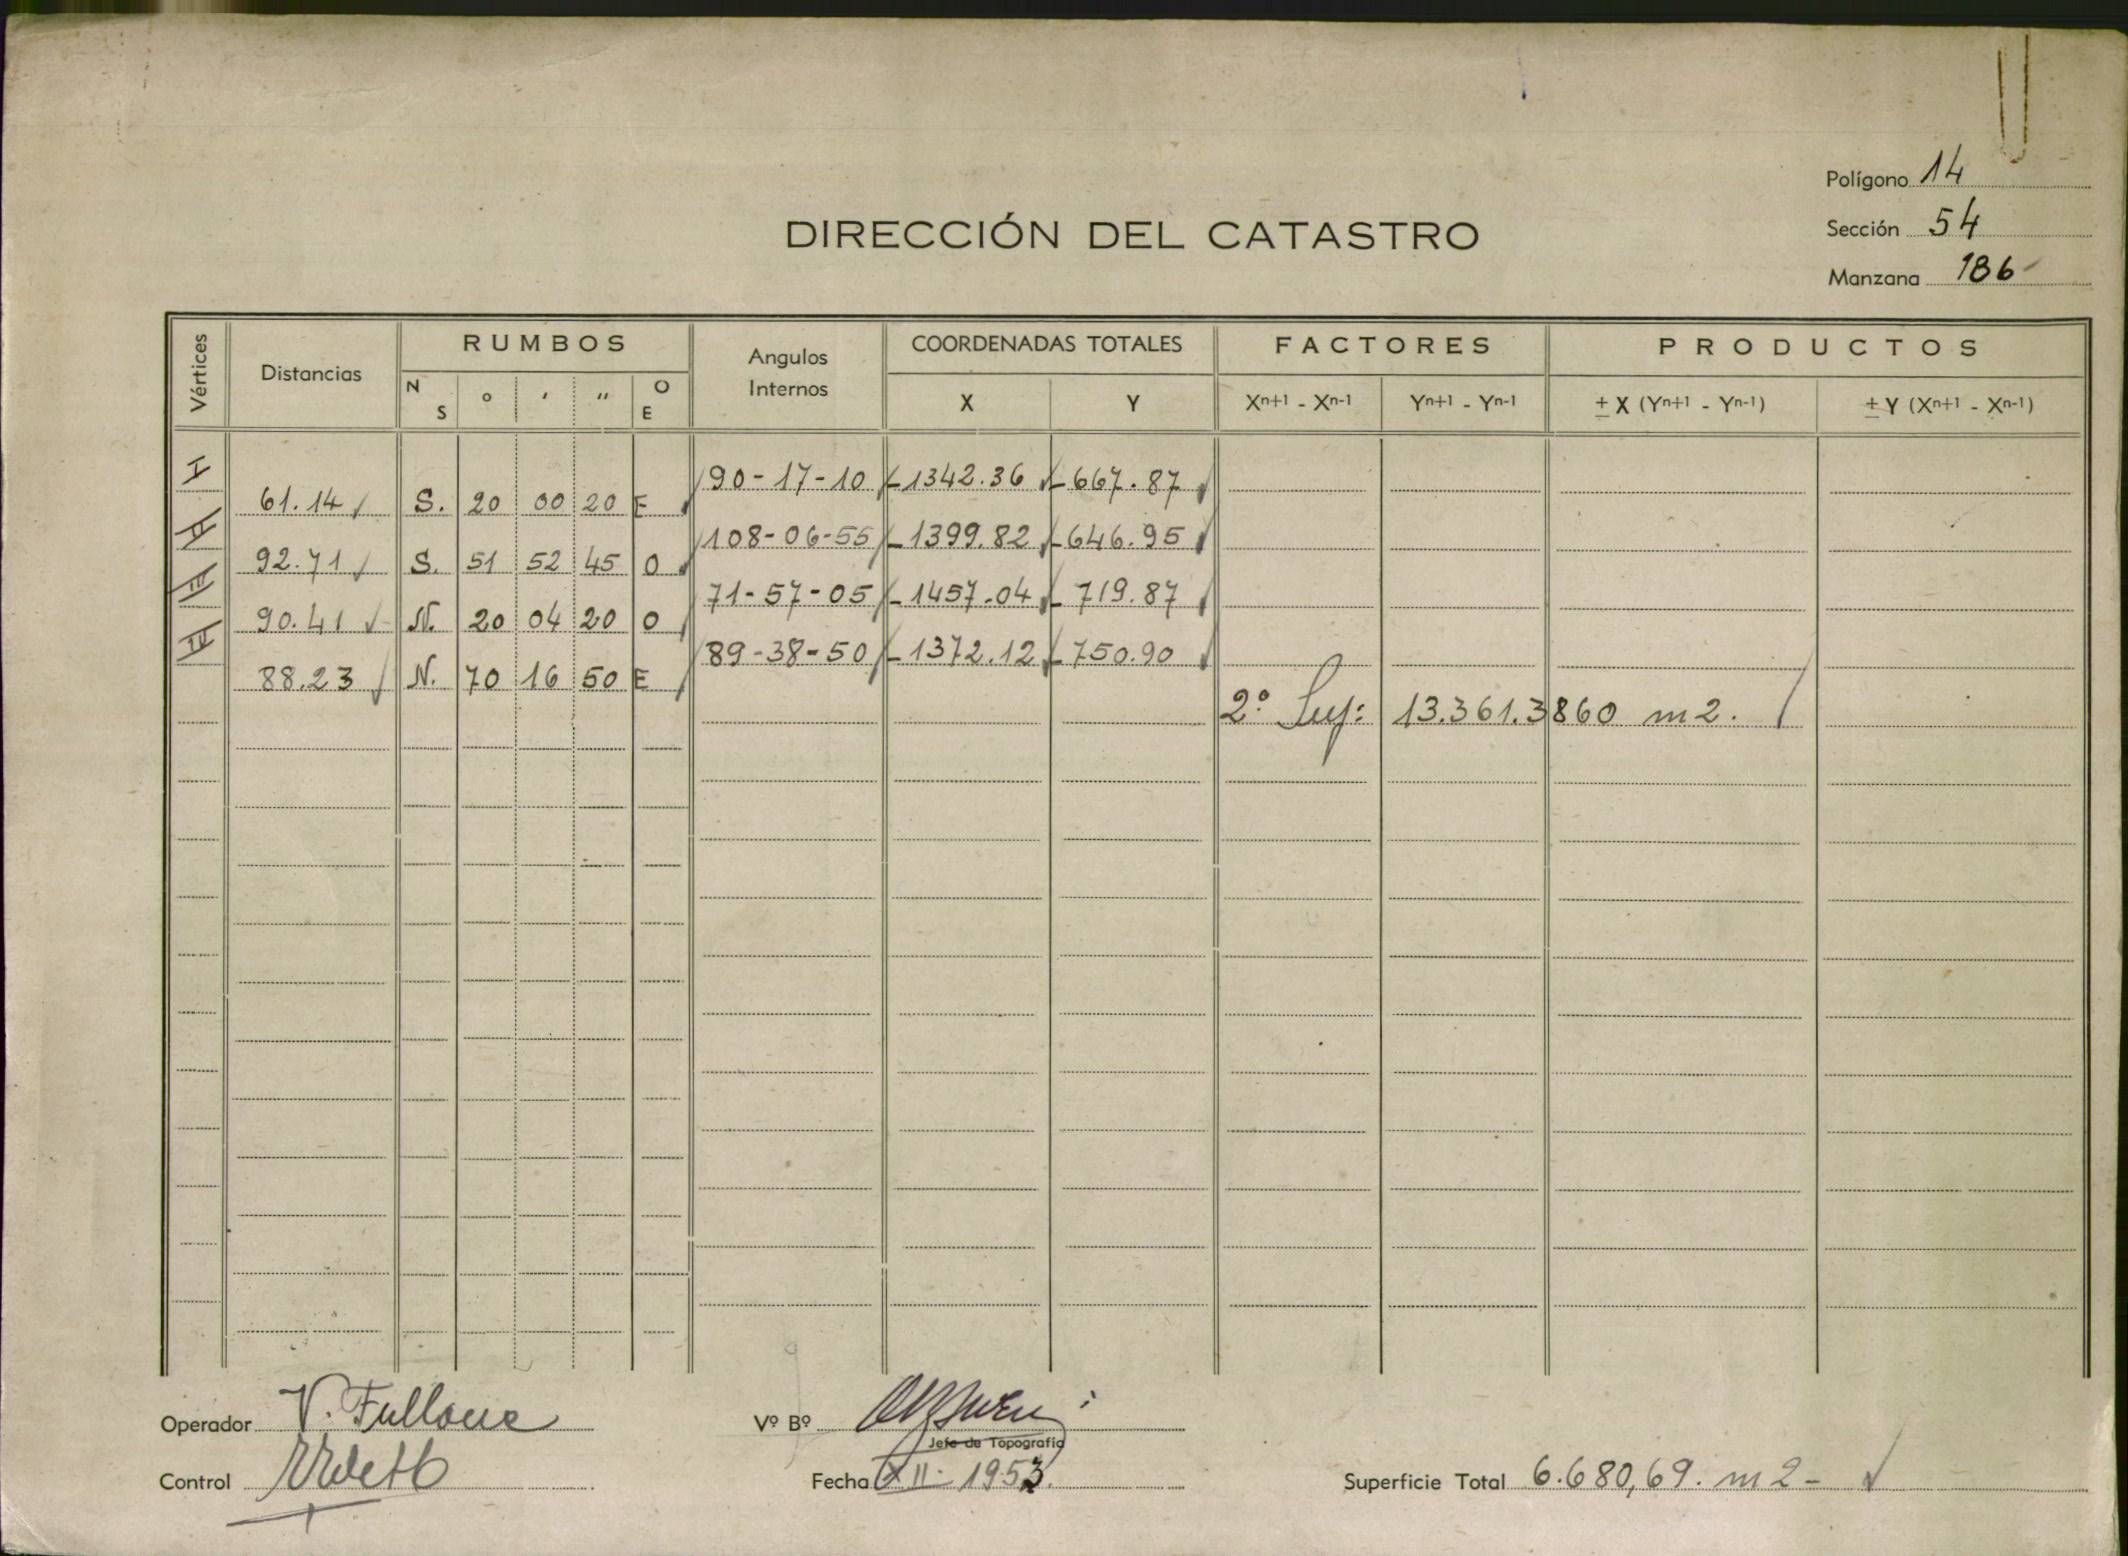 Polígono 14
DIRECCIÓN DEL CATASTRO
Sección 54
Manzana 186
Vértices Distancias RUMBOS Angulos Internos COORDENADAS TOTALES FACTORES PRODUCTOS
N S ° ' " O E X Y Xn+1 - Xn-1 Yn+1 - Yn-1 ± X (Yn+1 - Yn-1) ± Y (Xn+1 - Xn-1)
I 90-17-10 -1342.36 -667.87
61.14 S. 20 00 20 E
II 108-06-55 -1399.82 -646.95
92.71 S. 51 52 45 O
III 71-57-05 -1457.04 -719.87
90.41 N. 20 04 20 O
IV 89-38-50 -1372.12 -750.90
88.23 N. 70 16 50 E
2° Sup: 13.361.3860 m2.
Operador V. Fullone
Vº Bº
Jefe de Topografía
Control
Fecha XII- 1953.
Superficie Total 6.680,69. m2-